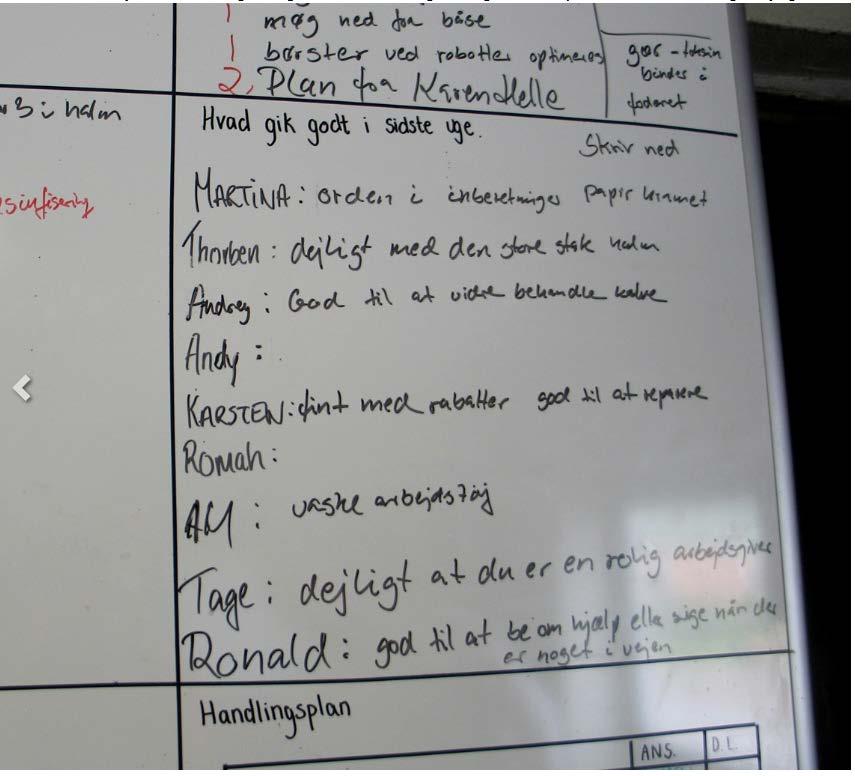 1 møg ned fra båse
1 børster ved robotter optimeres
2, Plan for Karenhelle
gær - toksin
bindes i
foderet
3 i halm
Hvad gik godt i sidste uge.
Skriv ned
MARTINA: orden i inberetninges papir
Thorben: dejligt med den store stak halm
Andrey: God til at vidre behandle kalve
Andy:
KARSTEN: fint med rabatter god til at reparere
Roman:
AM: vaske arbejdstøj
Tage: dejligt at du er en rolig arbejdsgiver
Ronald: god til at be om hjælp elle sige når der
er noget i vejen
Handlingsplan
ANS. D.L.